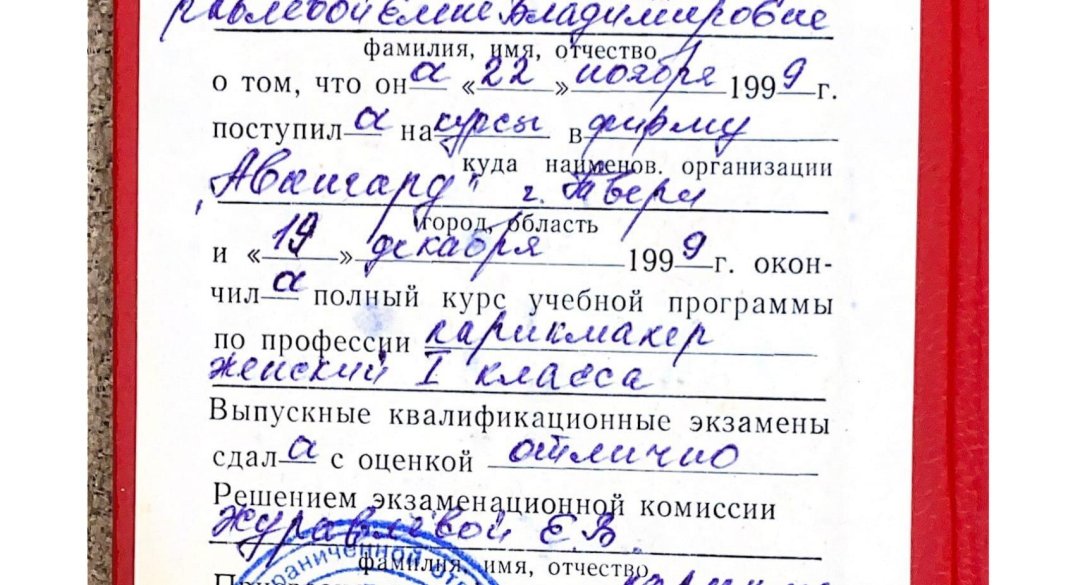 Журавлевой Елене Владимировне
фамилия, имя, отчество
о том, что он а «22» ноября 1999 г.
поступил а на курсы в фирму
куда наименов. организации
„Авангард" г. Твери
город, область
и «19» декабря 1999 г. окон-
чил а полный курс учебной программы
по профессии парикмахер
женский I класса
Выпускные квалификационные экзамены
сдал а с оценкой отлично
Решением экзаменационной комиссии
Журавлевой Е.В.
фамилия, имя, отчество